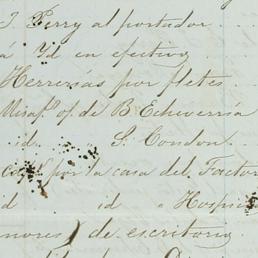 J. Perry al portador
á Yd en efectivo
Herrerías por fletes
Miraf.s of. de B Echeverría
id. S. Condon
por la casa del Factor
d id o Hospi
nores) de escritorio